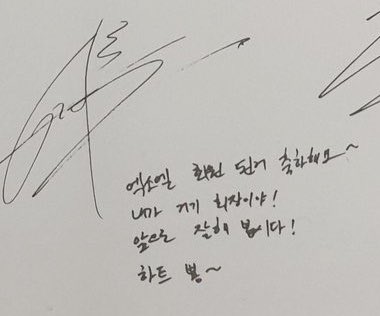 엑소엘 회원 된거 축하해요~
내가 거기 회장이야!
앞으로 잘해 봅시다!
하트 뿅~